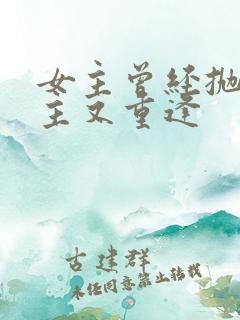 女主曾经抛
主又重逢
古建群
未经同意禁止转载